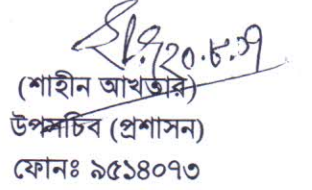 ২০.৮.১৭
(শাহীন আখতার)
উপসচিব (প্রশাসন)
ফোনঃ ৯৫১৪০৭৩